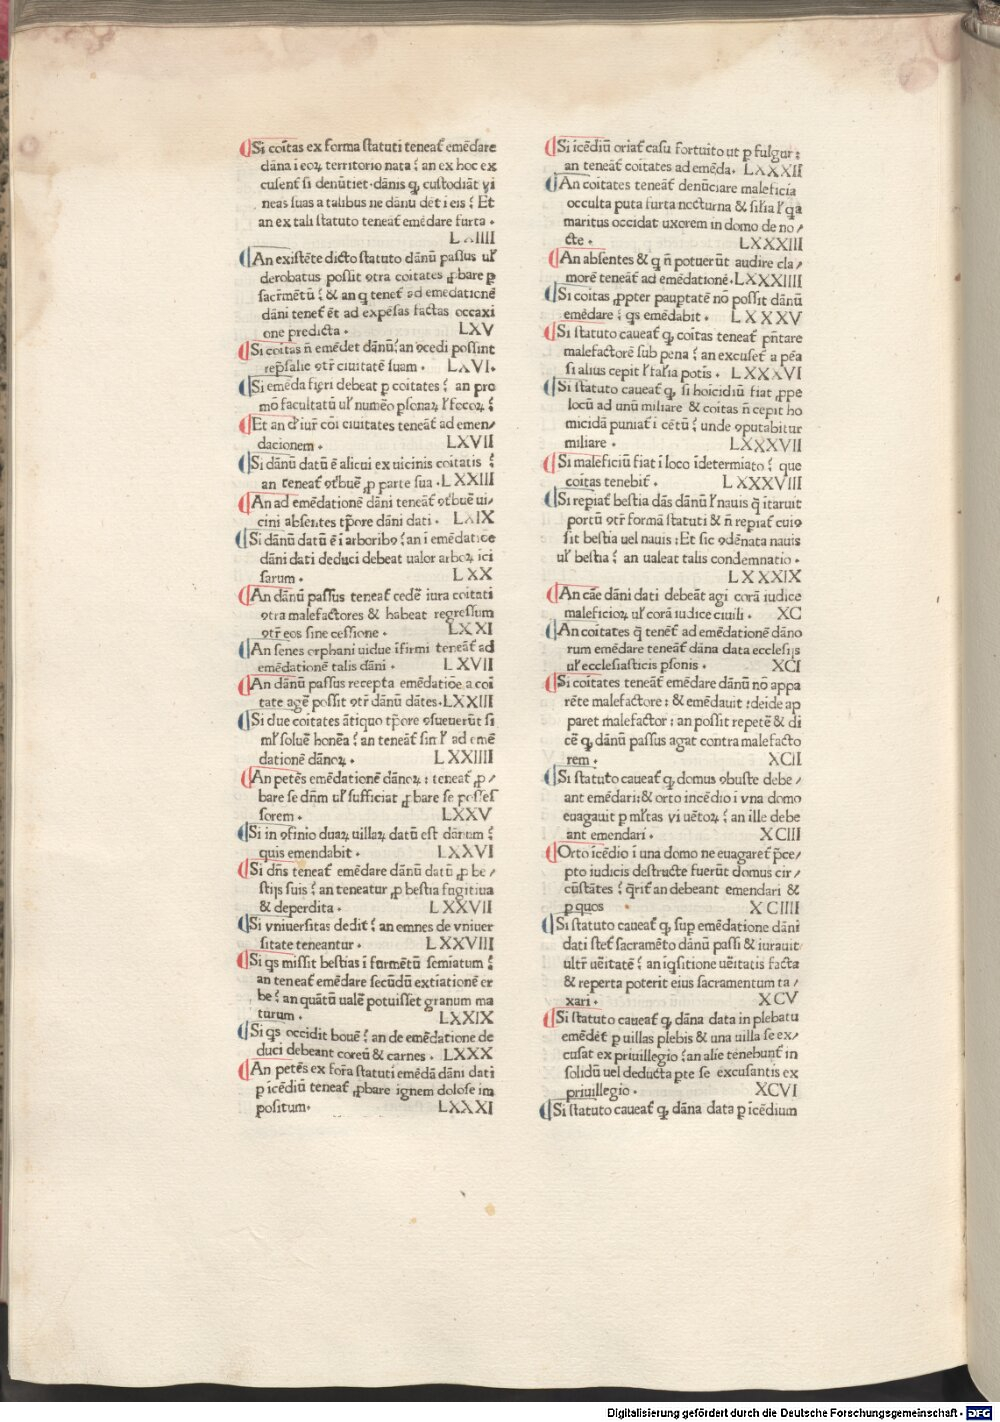 Si coı̄tas ex forma ſtatuti teneat᷑ emēdare
dāna i eoꝝ territorio nata ⁝ an ex hoc ex
cuſent᷑ ſi denūtiet · dānis ꝙ cuſtodiāt vi
neas ſuas a talibus ne dānū det i eis ⁝ Et
an ex tali ſtatuto teneat᷑ emēdare furta ·
LXIIII
An exiſtēte dicto ſtatuto dānū paſſus ul᷑
derobatus poſſit ꝯtra coitates ꝓbare ꝑ
ſacr̄mētū ⁝ & an q tenet᷑ ad emēdationē
dāni tenet᷑ et ad expēſas factas occaxi
one predicta · LXV
Si coitas n̄ emēdet dānū ⁝ an ꝯcedi poſſint
rep̄ſalie ꝯtr̄ ciuitatē ſuam · LXVI.
Si emēda fieri debeat p coitates ⁝ an pro
mō facultatū ul᷑ numēo pſonaꝝ l᷑ focoꝝ ⁝
Et an d᷑ iur̄ cōi ciuitates teneāt᷑ ad emen/
dacionem · LXVII
Si dānū datū ē alicui ex uicinis coitatis ⁝
an teneat᷑ ꝯt᷑buē ꝓ parte ſua · LXXIII
An ad emēdationē dāni teneāt᷑ ꝯt᷑buē ui/
cini abſentes tp̄ore dāni dati · LXIX
Si dānū datū ē i arboribꝯ ⁝ an i emēdatiōe
dāni dati deduci debeat ualor arboꝝ ici
ſarum · LXX
An dānū paſſus teneat᷑ cedē iura coitati
ꝯtra malefactores & habeat regreſſum
ꝯtr̄ eos ſine ceſſione · LXXI
An ſenes orphani uidue īfirmi teneāt᷑ ad
emēdationē talis dāni · LXVII
An dānū paſſus recepta emēdatiōe a coi
tate agē poſſit ꝯtr̄ dānū dātes · LXXIII
Si due coitates ātiquo tp̄ore ꝯſueuerūt ſi
ml᷑ ſoluē honēa ⁝ an teneāt᷑ ſin l᷑ ad emē
dationē dānoꝝ · LXXIIII
An petēs emēdationē dānoꝝ ⁝ teneat᷑ ꝓ/
bare ſe dn̄m ul᷑ ſufficiat ꝓbare ſe poſſeſ
ſorem · LXXV
Si in ꝯfinio duaꝝ uillaꝝ datū eſt dānum ⁝
quis emendabit · LXXVI
Si dn̄s teneat᷑ emēdare dānū datū ꝓ be/
ſtijs ſuis ⁝ an teneatur ꝓ beſtia fugitiua
& deperdita · LXXVII
Si vniuerſitas dedit᷑ ⁝ an emnes de vniuer
ſitate teneantur · LXXVIII
Si qs miſſit beſtias i furmētū ſemiatum ⁝
an teneat᷑ emēdare ſecūdū extiationē er
be ⁝ an quātū ualē potuiſſet granum ma
turum · LXXIX
Si qs occidit bouē ⁝ an de emēdatione de
duci debeant coreū & carnes · LXXX
An petēs ex for̄a ſtatuti emēdā dāni dati
p icēdiū teneat᷑ ꝓbare ignem doloſe im
poſitum · LXXXI
Si icēdiū oriat᷑ caſu fortuito ut p fulgur ⁝
an teneāt᷑ coitates ad emēda · LXXXII
An coitates teneāt᷑ denūciare maleficia
occulta puta furta nocturna & ſilia l᷑ qa
maritus occidat uxorem in domo de no/
cte · LXXXIII
An abſentes & q n̄ potuerūt audire cla/
morē teneāt᷑ ad emēdationē · LXXXIIII
Si coitas ꝓpter paupтatē nō poſſit dānū
emēdare ⁝ qs emēdabit · LXXXV
Si ſtatuto caueat᷑ ꝙ coitas teneat᷑ pn̄tare
malefactorē ſub pena ⁝ an excuſet᷑ a pēa
ſi alius cepit l᷑ fal᷑ia potīs · LXXXVI
Si ſtatuto caueat᷑ ꝙ ſi hoicidiū fiat ꝓpe
locū ad unū miliare & coitas n̄ cepit ho
micidā puniat᷑ i cētū ⁝ unde ꝯputabitur
miliare · LXXXVII
Si maleficiū fiat i loco īdetermiato ⁝ que
coitas tenebit᷑ · LXXXVIII
Si repiat᷑ beſtia dās dānū l᷑ nauis q̄ ītaruit
portū ꝯtr̄ formā ſtatuti & n̄ repiat᷑ cuiꝯ
ſit beſtia uel nauis : Et ſic ꝯdēnata nauis
ul᷑ beſtia ⁝ an ualeat talis condemnatio ·
LXXXIX
An cāe dāni dati debeāt agi corā iudice
maleficioꝝ ul᷑ corā iudice ciuili · XC
An coitates q̄ tenēt᷑ ad emēdationē dāno
rum emēdare teneāt᷑ dāna data eccleſijs
ul᷑ eccleſiaſticis pſonis · XCI
Si coitates teneāt᷑ emēdare dānū nō appa
rēte malefactore : & emēdauit : deide ap
paret malefactor : an poſſit repetē & di
cē ꝙ dānū paſſus agat contra malefacto
rem · XCII
Si ſtatuto caueat᷑ ꝙ domus ꝯbuſte debe/
ant emēdari : & orto incēdio i vna domo
euagauit p ml᷑tas vi uētoꝝ ⁝ an ille debe
ant emendari · XCIII
Orto icēdio i una domo ne euagaret᷑ p̄ce/
pto iudicis deſtructe fuerūt domus cir/
cūſtātes ⁝ q̄rit᷑ an debeant emendari &
p quos · XCIIII
Si ſtatuto caueat᷑ ꝙ ſup emēdatione dāni
dati ſtet᷑ ſacramēto dānū paſſi & iurauit
ultr̄ uēitatē ⁝ an iqſitione uēitatis facta
& reperta poterit eius ſacramentum ta/
xari · XCV
Si ſtatuto caueat᷑ ꝙ dāna data in plebatu
emēdēt᷑ p uillas plebis & una uilla ſe ex/
cuſat ex priuillegio ⁝ an alie tenebunt᷑ in
ſolidū uel deducta pte ſe excuſantis ex
priuillegio · XCVI
Si ſtatuto caueat᷑ ꝙ dāna data p icēdium
Digitalisierung gefördert durch die Deutsche Forschungsgemeinschaft - DFG